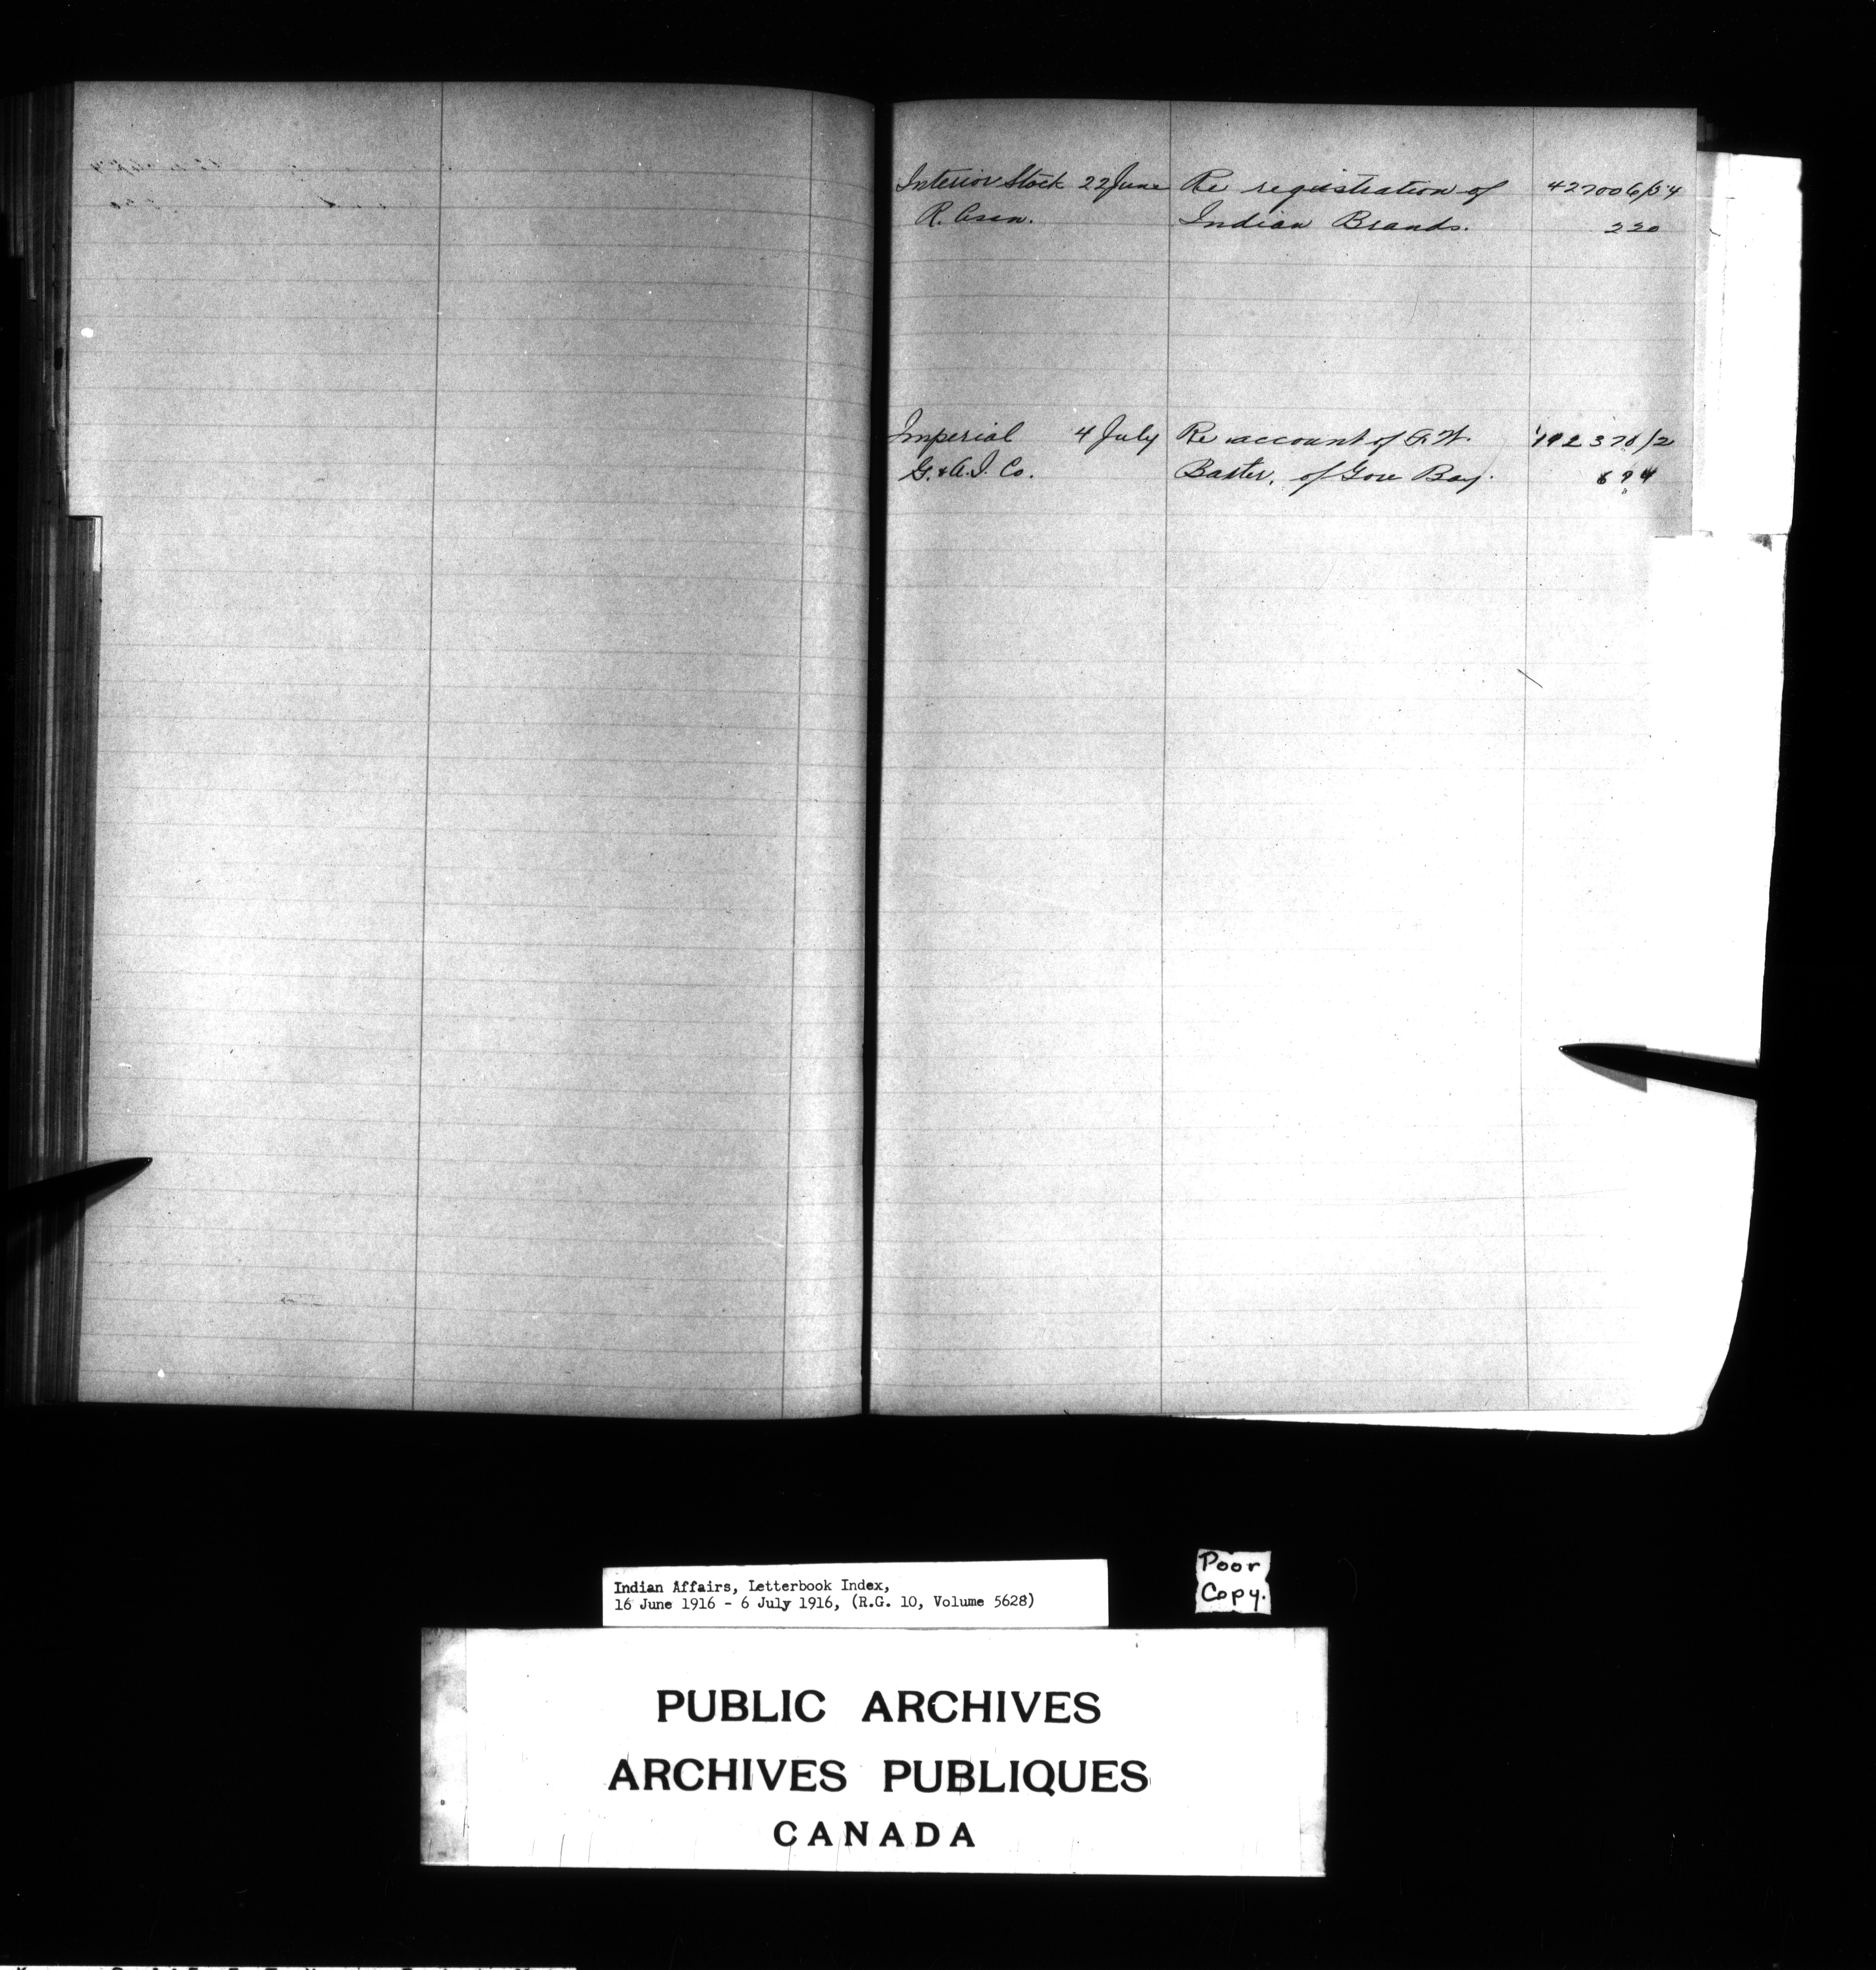 Interior Stock 22 June Re registration of 427006/54
R. Assn. Indian Brands. 220
Imperial 4 July Re account of F. W. 192370/2
G. & A. I. Co. Baxter, of Gore Bay. 694
Indian Affairs, Letterbook Index,
16 June 1916 - 6 July 1916, (R.G. 10, Volume 5628)
Poor
Copy.
PUBLIC ARCHIVES
ARCHIVES PUBLIQUES
CANADA